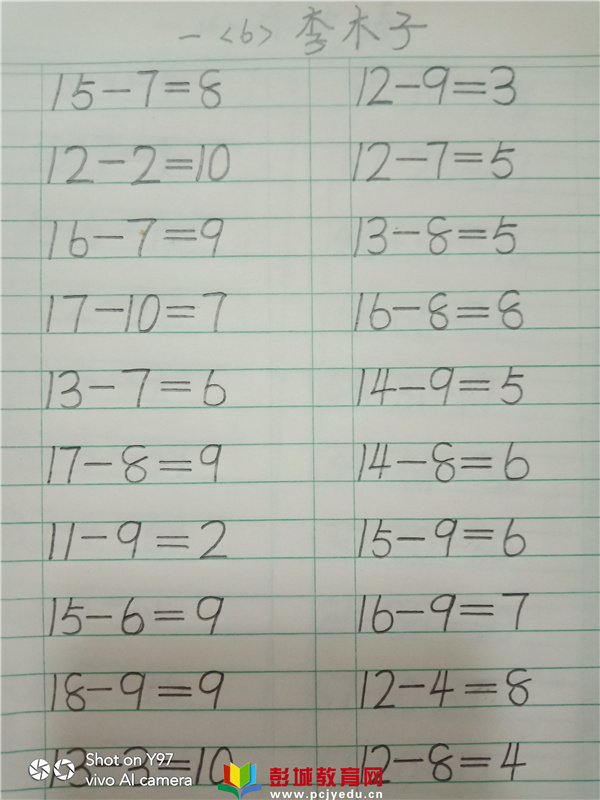 一<6> 李木子
15-7=8 12-9=3
12-2=10 12-7=5
16-7=9 13-8=5
17-10=7 16-8=8
13-7=6 14-9=5
17-8=9 14-8=6
11-9=2 15-9=6
15-6=9 16-9=7
18-9=9 12-4=8
13-3=10 12-8=4
Shot on Y97
vivo AI camera
彭城教育网
www.pcjyedu.cn